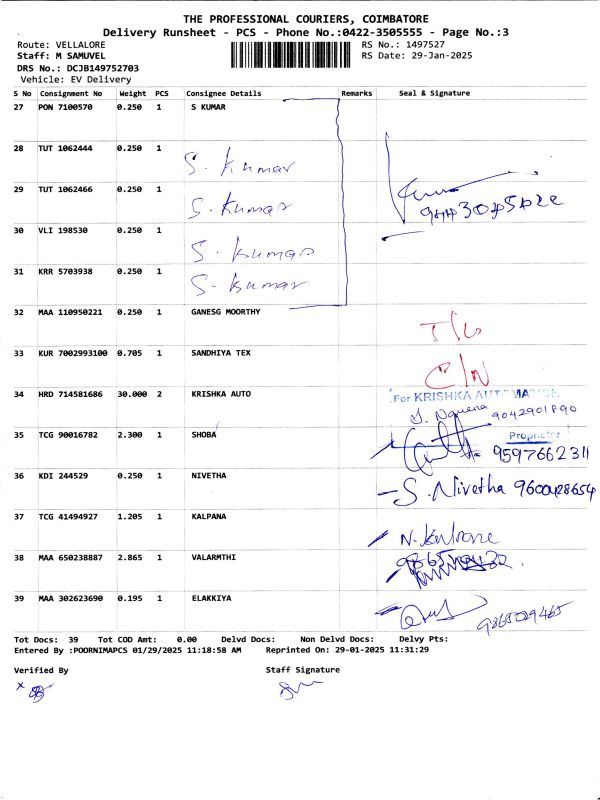 THE PROFESSIONAL COURIERS, COIMBATORE
Delivery Runsheet - PCS - Phone No.:0422-3505555 - Page No.:3
Route: VELLALORE RS No.: 1497527
Staff: M SAMUVEL RS Date: 29-Jan-2025
DRS No.: DCJB149752703
Vehicle: EV Delivery
S No Consignment No Weight PCS Consignee Details Remarks Seal & Signature
27 PON 7100570 0.250 1 S KUMAR
28 TUT 1062444 0.250 1 S. Kumar
29 TUT 1062466 0.250 1 S. Kumar
30 VLI 198530 0.250 1 S. Kumar
31 KRR 5703938 0.250 1 S. Kumar
32 MAA 110950221 0.250 1 GANESG MOORTHY
33 KUR 7002993100 0.705 1 SANDHIYA TEX C/N
34 HRD 714581686 30.000 2 KRISHKA AUTO For KRISHKA AUTOMATION
9042901890
Proprietor
35 TCG 90016782 2.300 1 SHOBA 9597662311
36 KDI 244529 0.250 1 NIVETHA S. Nivetha 9600428654
37 TCG 41494927 1.205 1 KALPANA
38 MAA 650238887 2.865 1 VALARMTHI
39 MAA 302623690 0.195 1 ELAKKIYA 9865029465
Tot Docs: 39 Tot COD Amt: 0.00 Delvd Docs: Non Delvd Docs: Delvy Pts:
Entered By :POORNIMAPCS 01/29/2025 11:18:58 AM Reprinted On: 29-01-2025 11:31:29
Verified By Staff Signature